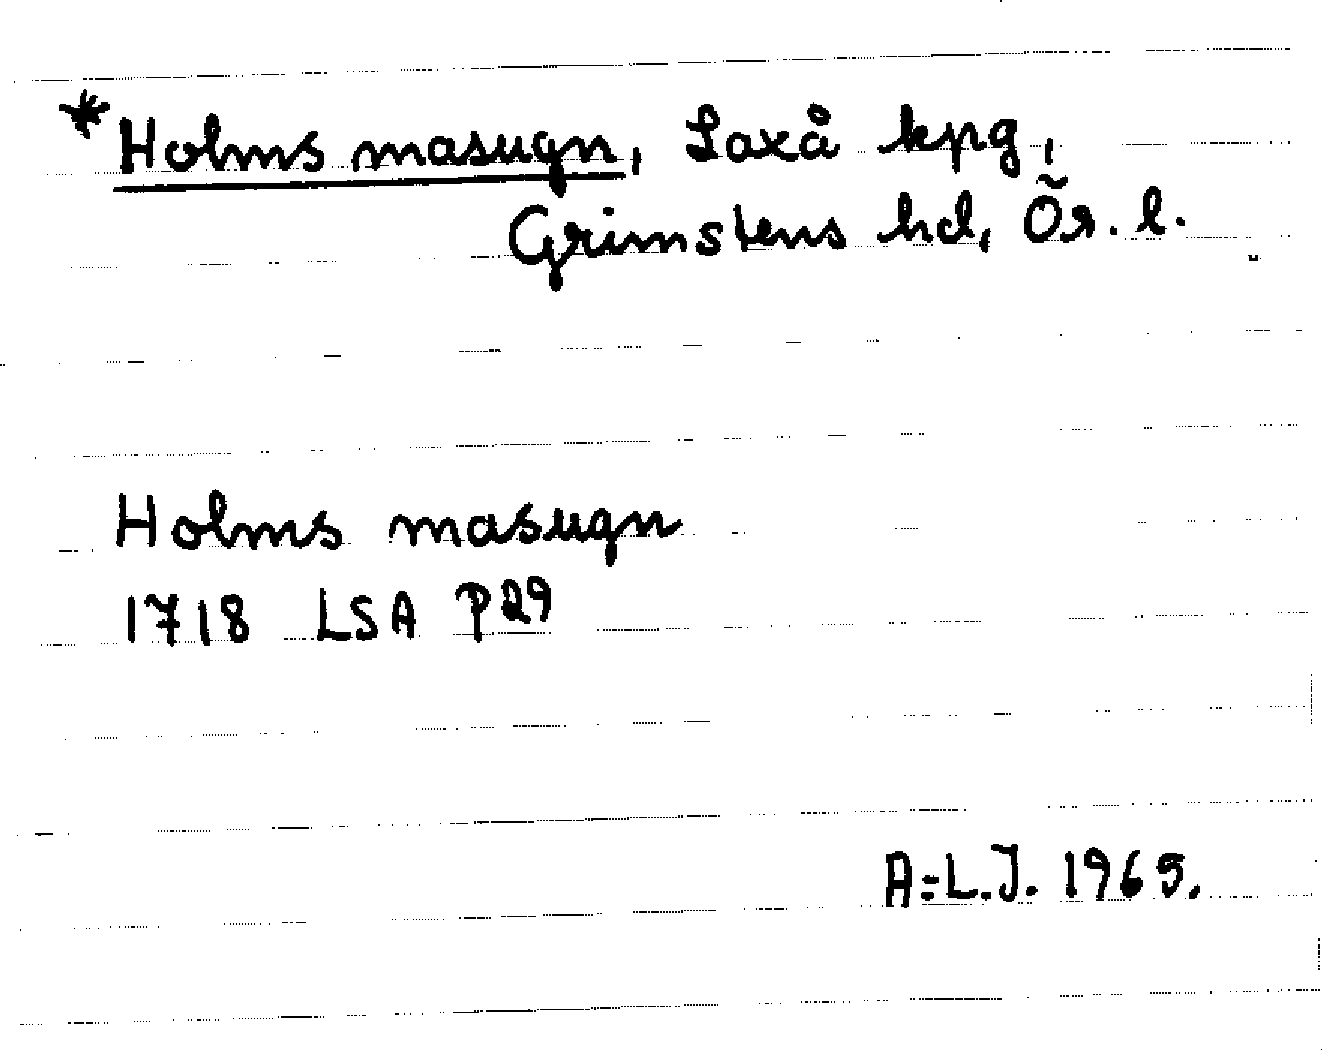 *Holms masugn, Laxå kpg,
Grimstens hd, Ör. l.
Holms masugn
1718 LSA P29
A-L.J. 1965.